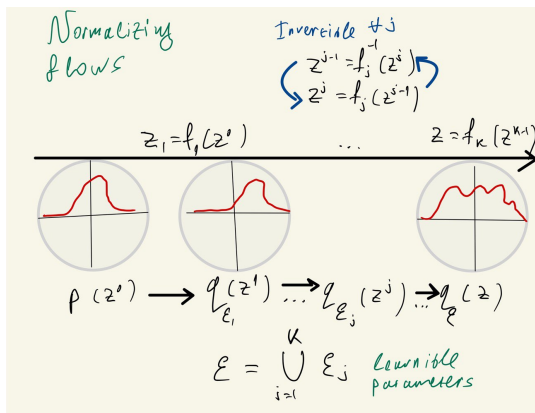 Normalizing
flows
Invertible ∀j
z^{j-1} = f_j^{-1}(z^j)
z^j = f_j(z^{j-1})
z_1 = f_1(z^0)
...
z = f_K(z^{K-1})
p(z^0) → q_{ε_1}(z^1) ... → q_{ε_j}(z^j) ... → q_ε(z)
ε = ⋃_{j=1}^{K} ε_j
learnible
parameters